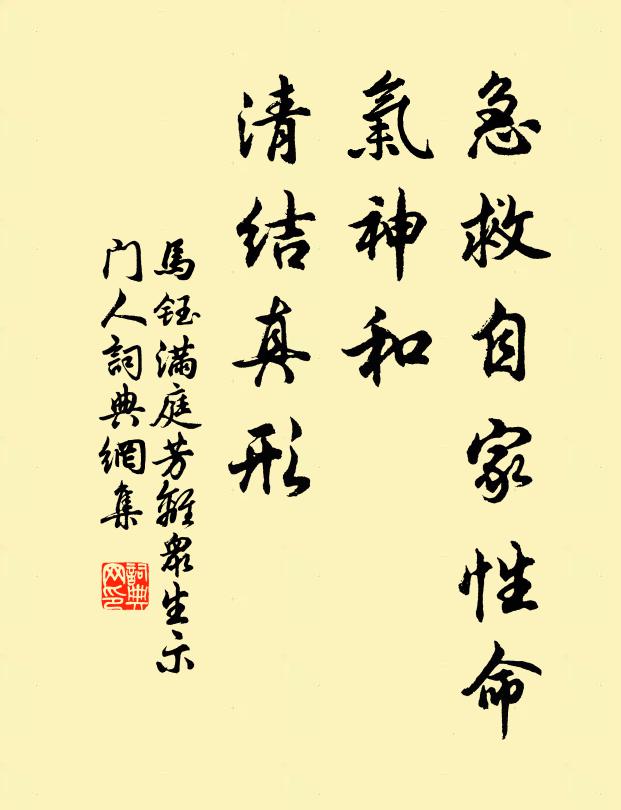 急救自家性命
氣神和
清結真形
馬鈺滿庭芳離衆生示
门人詞典網集
詞典网印